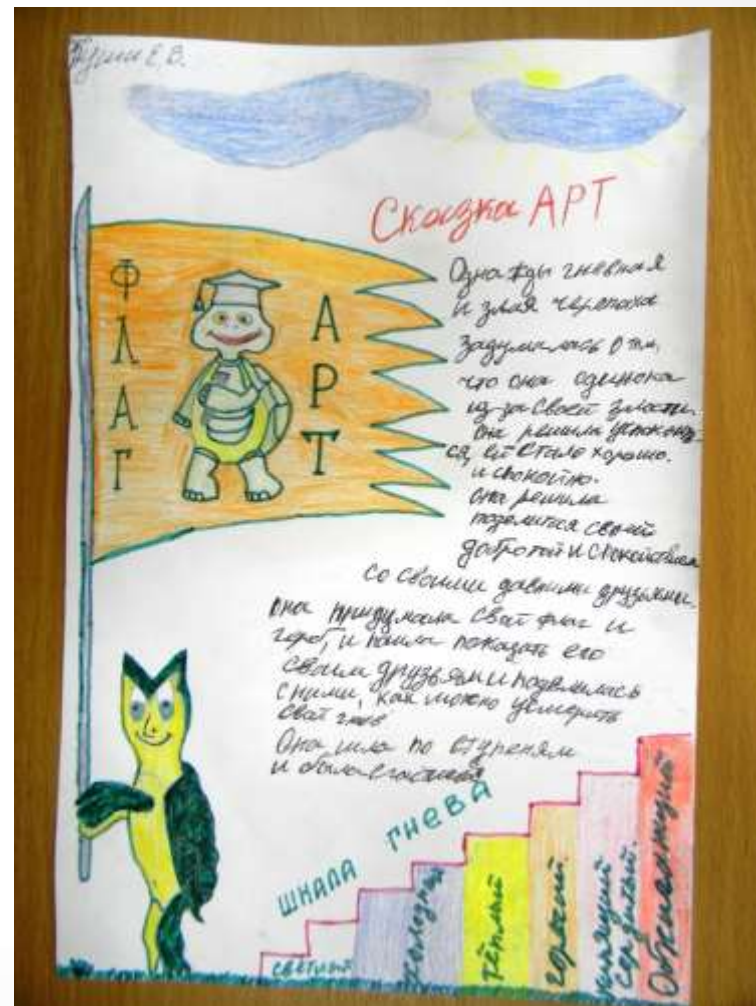 Е.В.
Сказка АРТ
ФЛАГ
АРТ
Однажды гневная
и злая черепаха
задумалась о том,
что она одинока
из-за своей злости.
Она решила успокоит-
ся, ей стало хорошо.
и спокойно.
Она решила
поделится своей
добротой и спокойствием
со своими давними друзьями.
Она придумала свой флаг и
герб, и пошла показать его
своим друзьям и поделилась
с ними, как можно усмирить
свой гнев
Она шла по ступеням
и была счастлива
ШКАЛА ГНЕВА
светлый
холодный
тёплый
горячий.
кипящий
сердитый.
Обжигающий